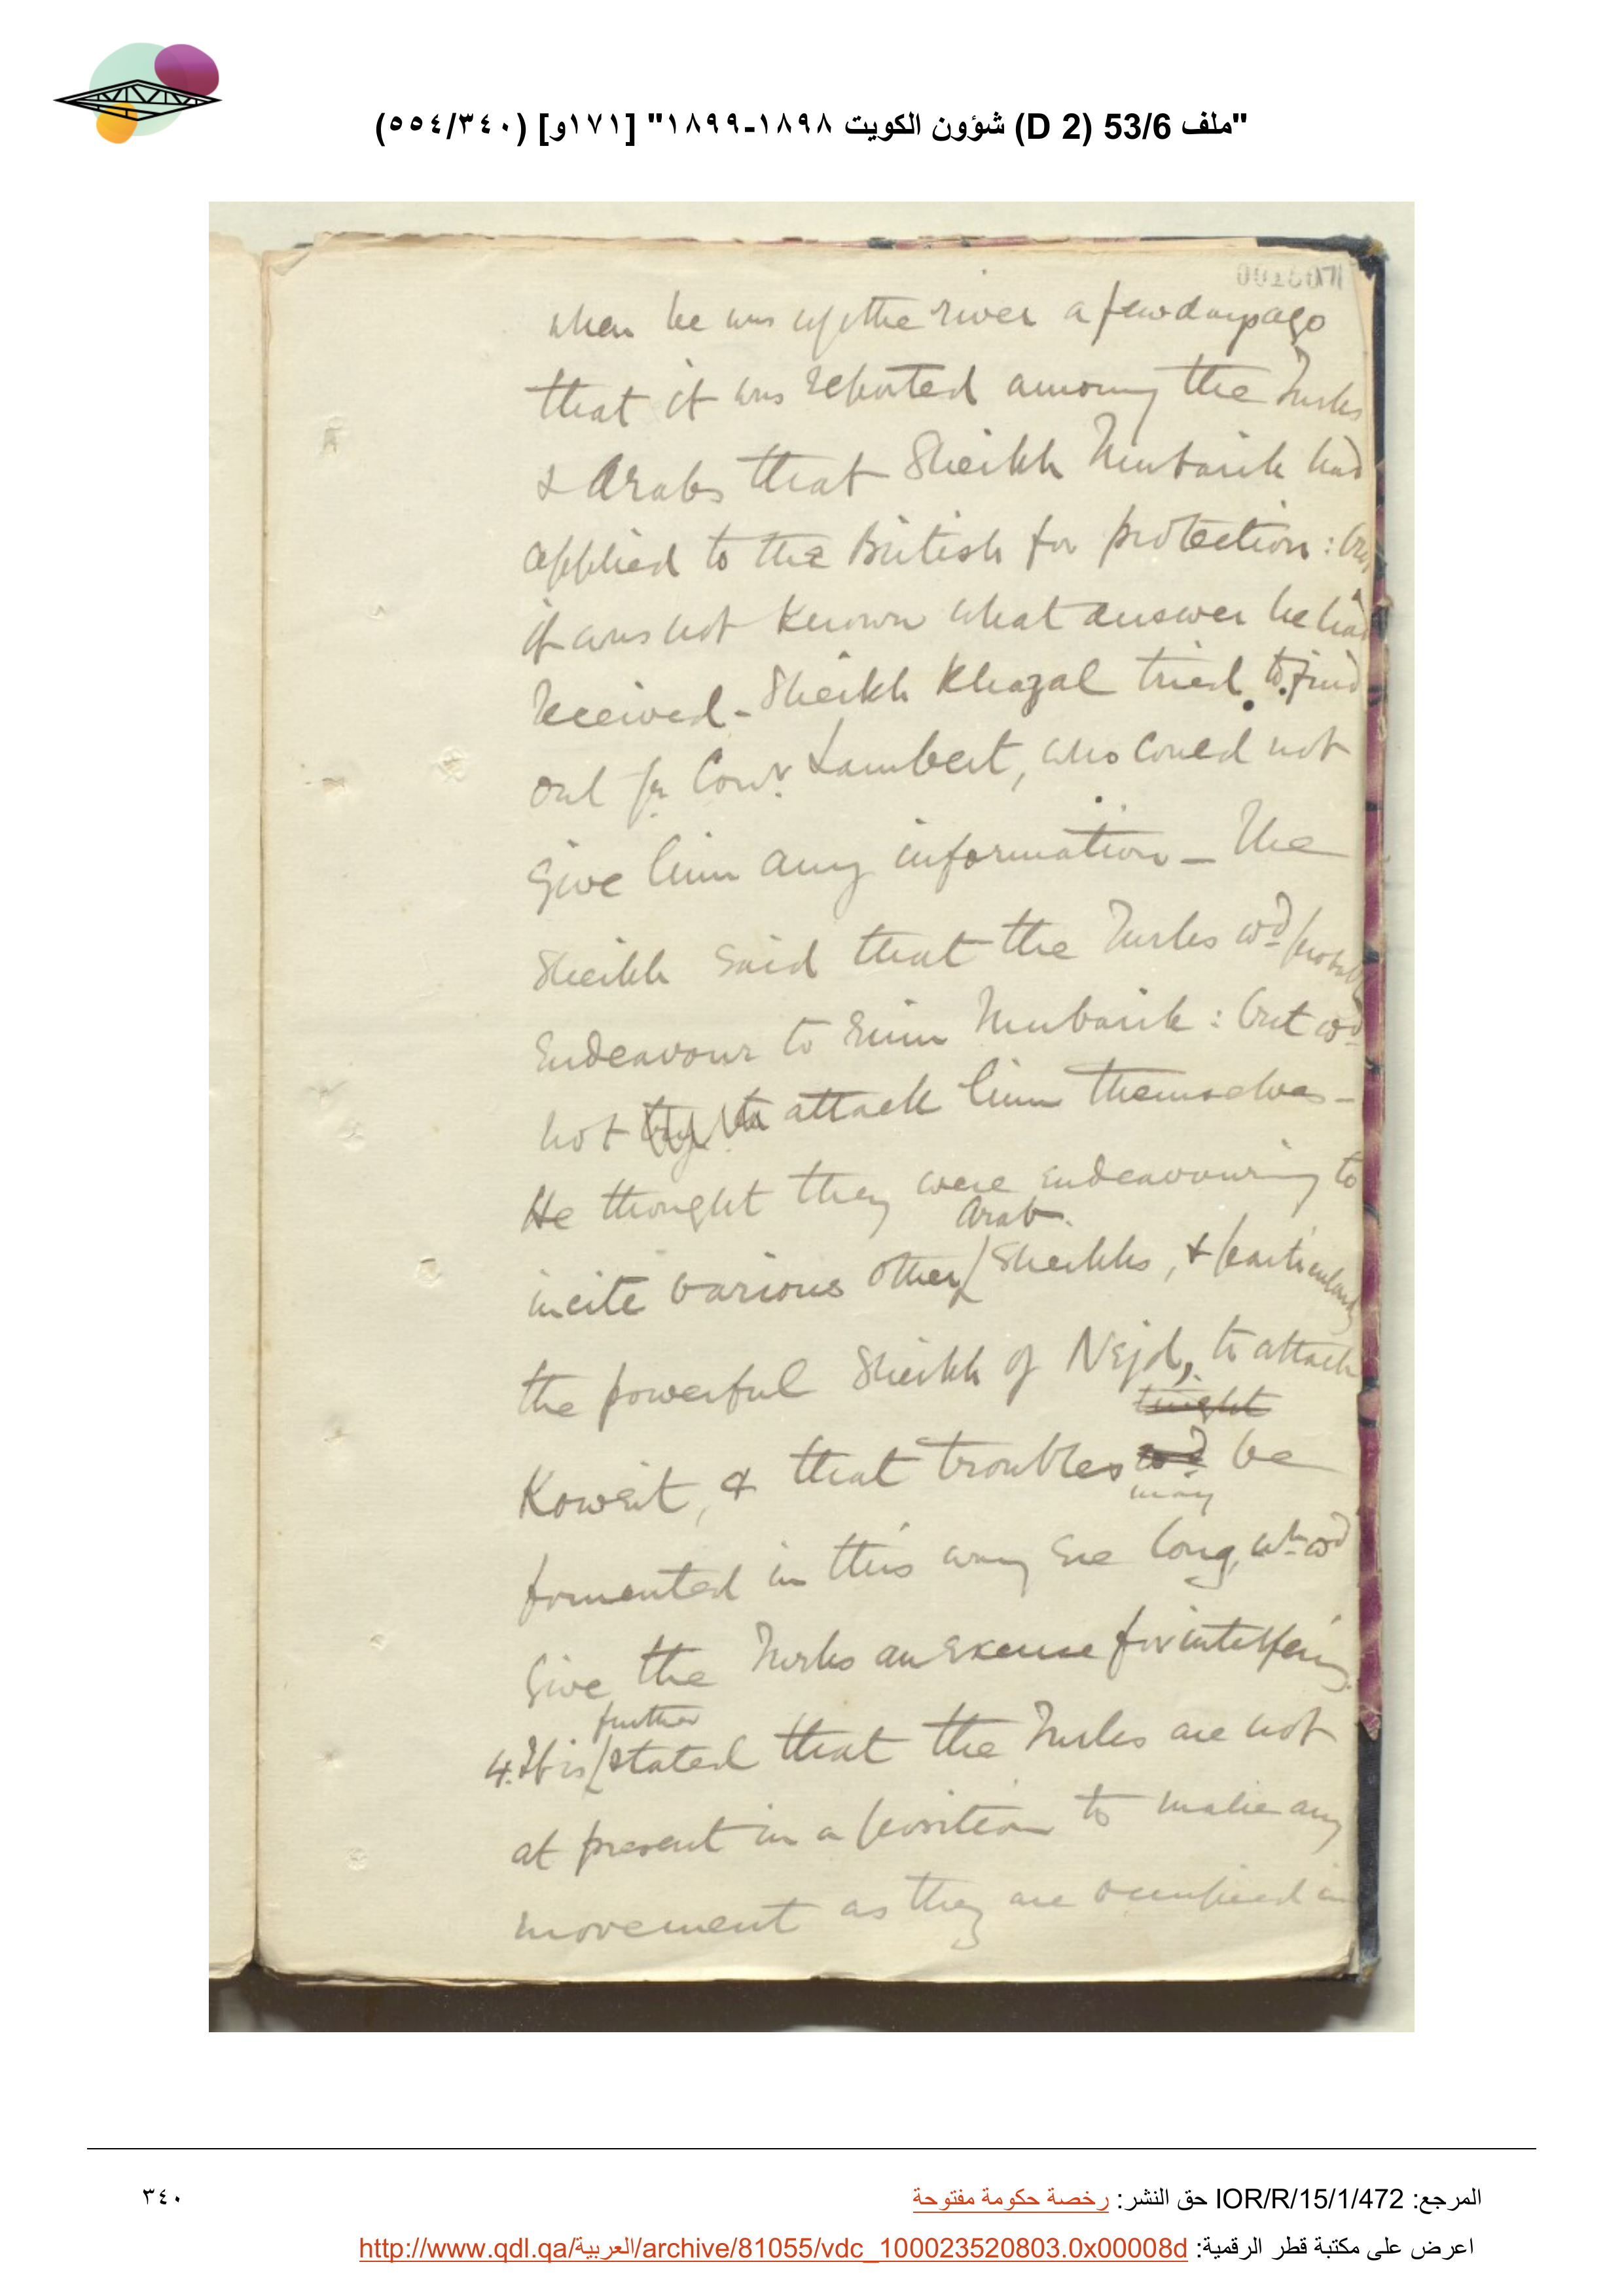 "ملف 53/6 (D 2) شؤون الكويت ١٨٩٨-١٨٩٩" [١٧١و] (٥٥٤/٣٤٠)
when he was up the river a few days ago
that it was reported among the Turks
& Arabs that Sheikh Mubarik had
applied to the British for protection: but
it was not known what answer he had
received - Sheikh Khazal tried to find
out fr Comr Lambert, who could not
give him any information - The
Sheikh said that the Turks wd probably
endeavour to ruin Mubarik: but wd
not try to attack him themselves -
He thought they were endeavouring to
Arab
incite various other / Sheikhs, & particularly
the powerful Sheikh of Nejd, to attack
might
Koweit, & that troubles wd be
may
fomented in this way ere long, wh wd
give the Turks an excuse for interfering.
further
4. It is / stated that the Turks are not
at present in a position to make any
movement as they are occupied in
المرجع: IOR/R/15/1/472 حق النشر: رخصة حكومة مفتوحة
٣٤٠
اعرض على مكتبة قطر الرقمية: http://www.qdl.qa/العربية/archive/81055/vdc_100023520803.0x00008d